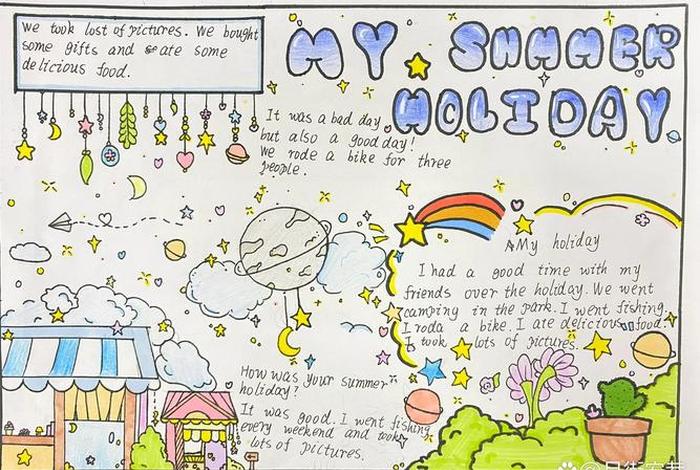 MY SUMMER
HOLIDAY
We took lost of pictures. We bought
some gifts and ate some
delicious food.
It was a bad day
but also a good day!
We rode a bike for three
people.
My holiday
I had a good time with my
friends over the holiday. We went
camping in the park. I went fishing.
I roda a bike. I ate delicious food.
I took lots of pictures.
How was your summer
holiday?
It was good. I went fishing
every weekend and
lots of pictures.